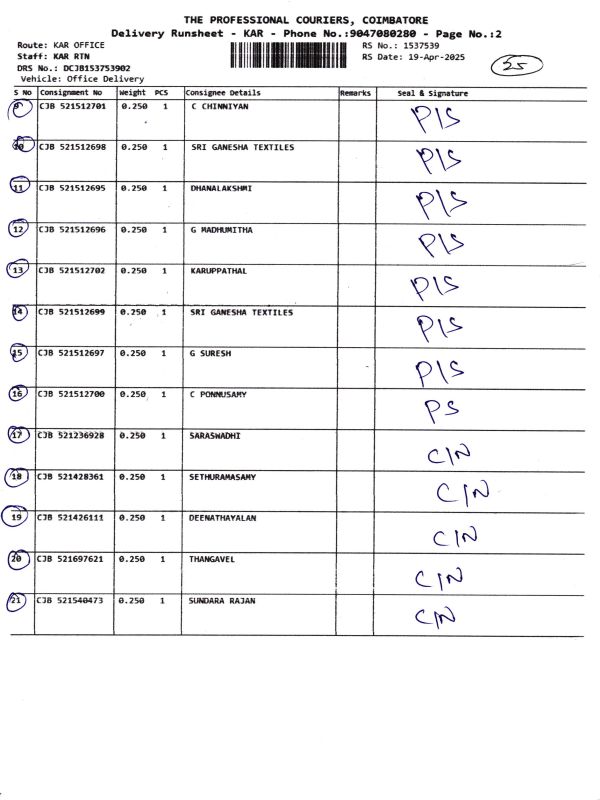 THE PROFESSIONAL COURIERS, COIMBATORE
Delivery Runsheet - KAR - Phone No.:9047080280 - Page No.:2
Route: KAR OFFICE RS No.: 1537539
Staff: KAR RTN RS Date: 19-Apr-2025 25
DRS No.: DCJB153753902
Vehicle: Office Delivery
S No Consignment No Weight PCS Consignee Details Remarks Seal & Signature
9 CJB 521512701 0.250 1 C CHINNIYAN P/S
10 CJB 521512698 0.250 1 SRI GANESHA TEXTILES P/S
11 CJB 521512695 0.250 1 DHANALAKSHMI P/S
12 CJB 521512696 0.250 1 G MADHUMITHA P/S
13 CJB 521512702 0.250 1 KARUPPATHAL P/S
14 CJB 521512699 0.250 1 SRI GANESHA TEXTILES P/S
15 CJB 521512697 0.250 1 G SURESH P/S
16 CJB 521512700 0.250 1 C PONNUSAMY PS
17 CJB 521236928 0.250 1 SARASWADHI C/N
18 CJB 521428361 0.250 1 SETHURAMASAMY C/N
19 CJB 521426111 0.250 1 DEENATHAYALAN C/N
20 CJB 521697621 0.250 1 THANGAVEL C/N
21 CJB 521540473 0.250 1 SUNDARA RAJAN C/N